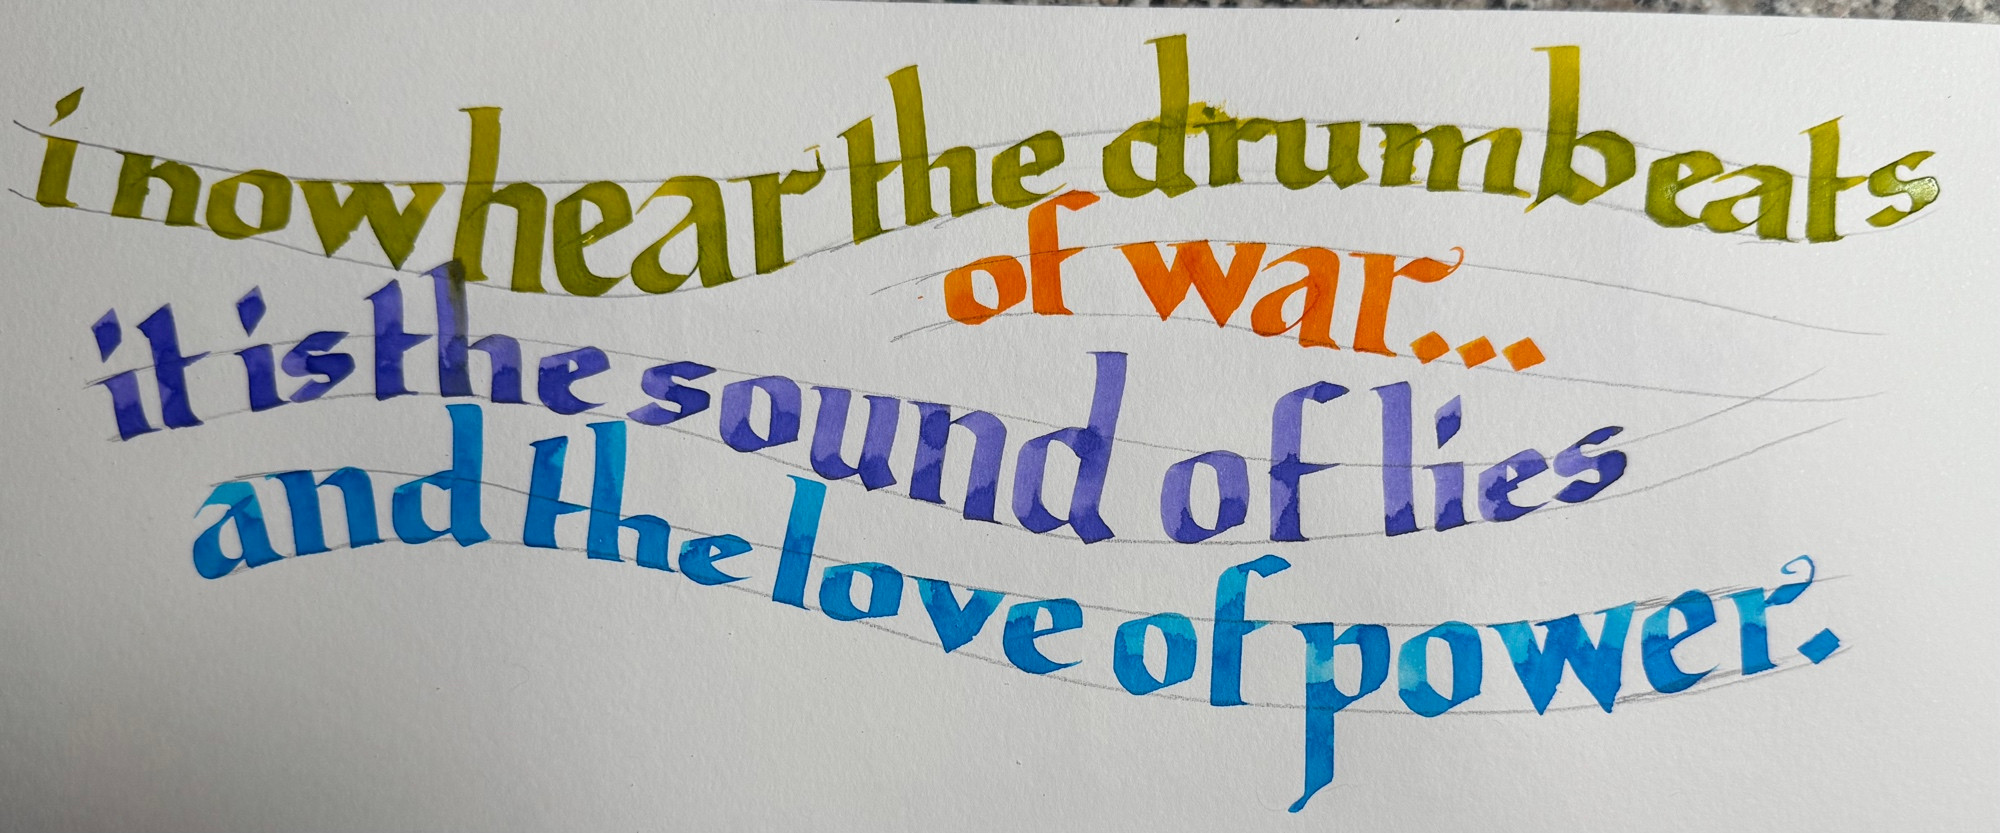 i now hear the drumbeats
of war...
it is the sound of lies
and the love of power.